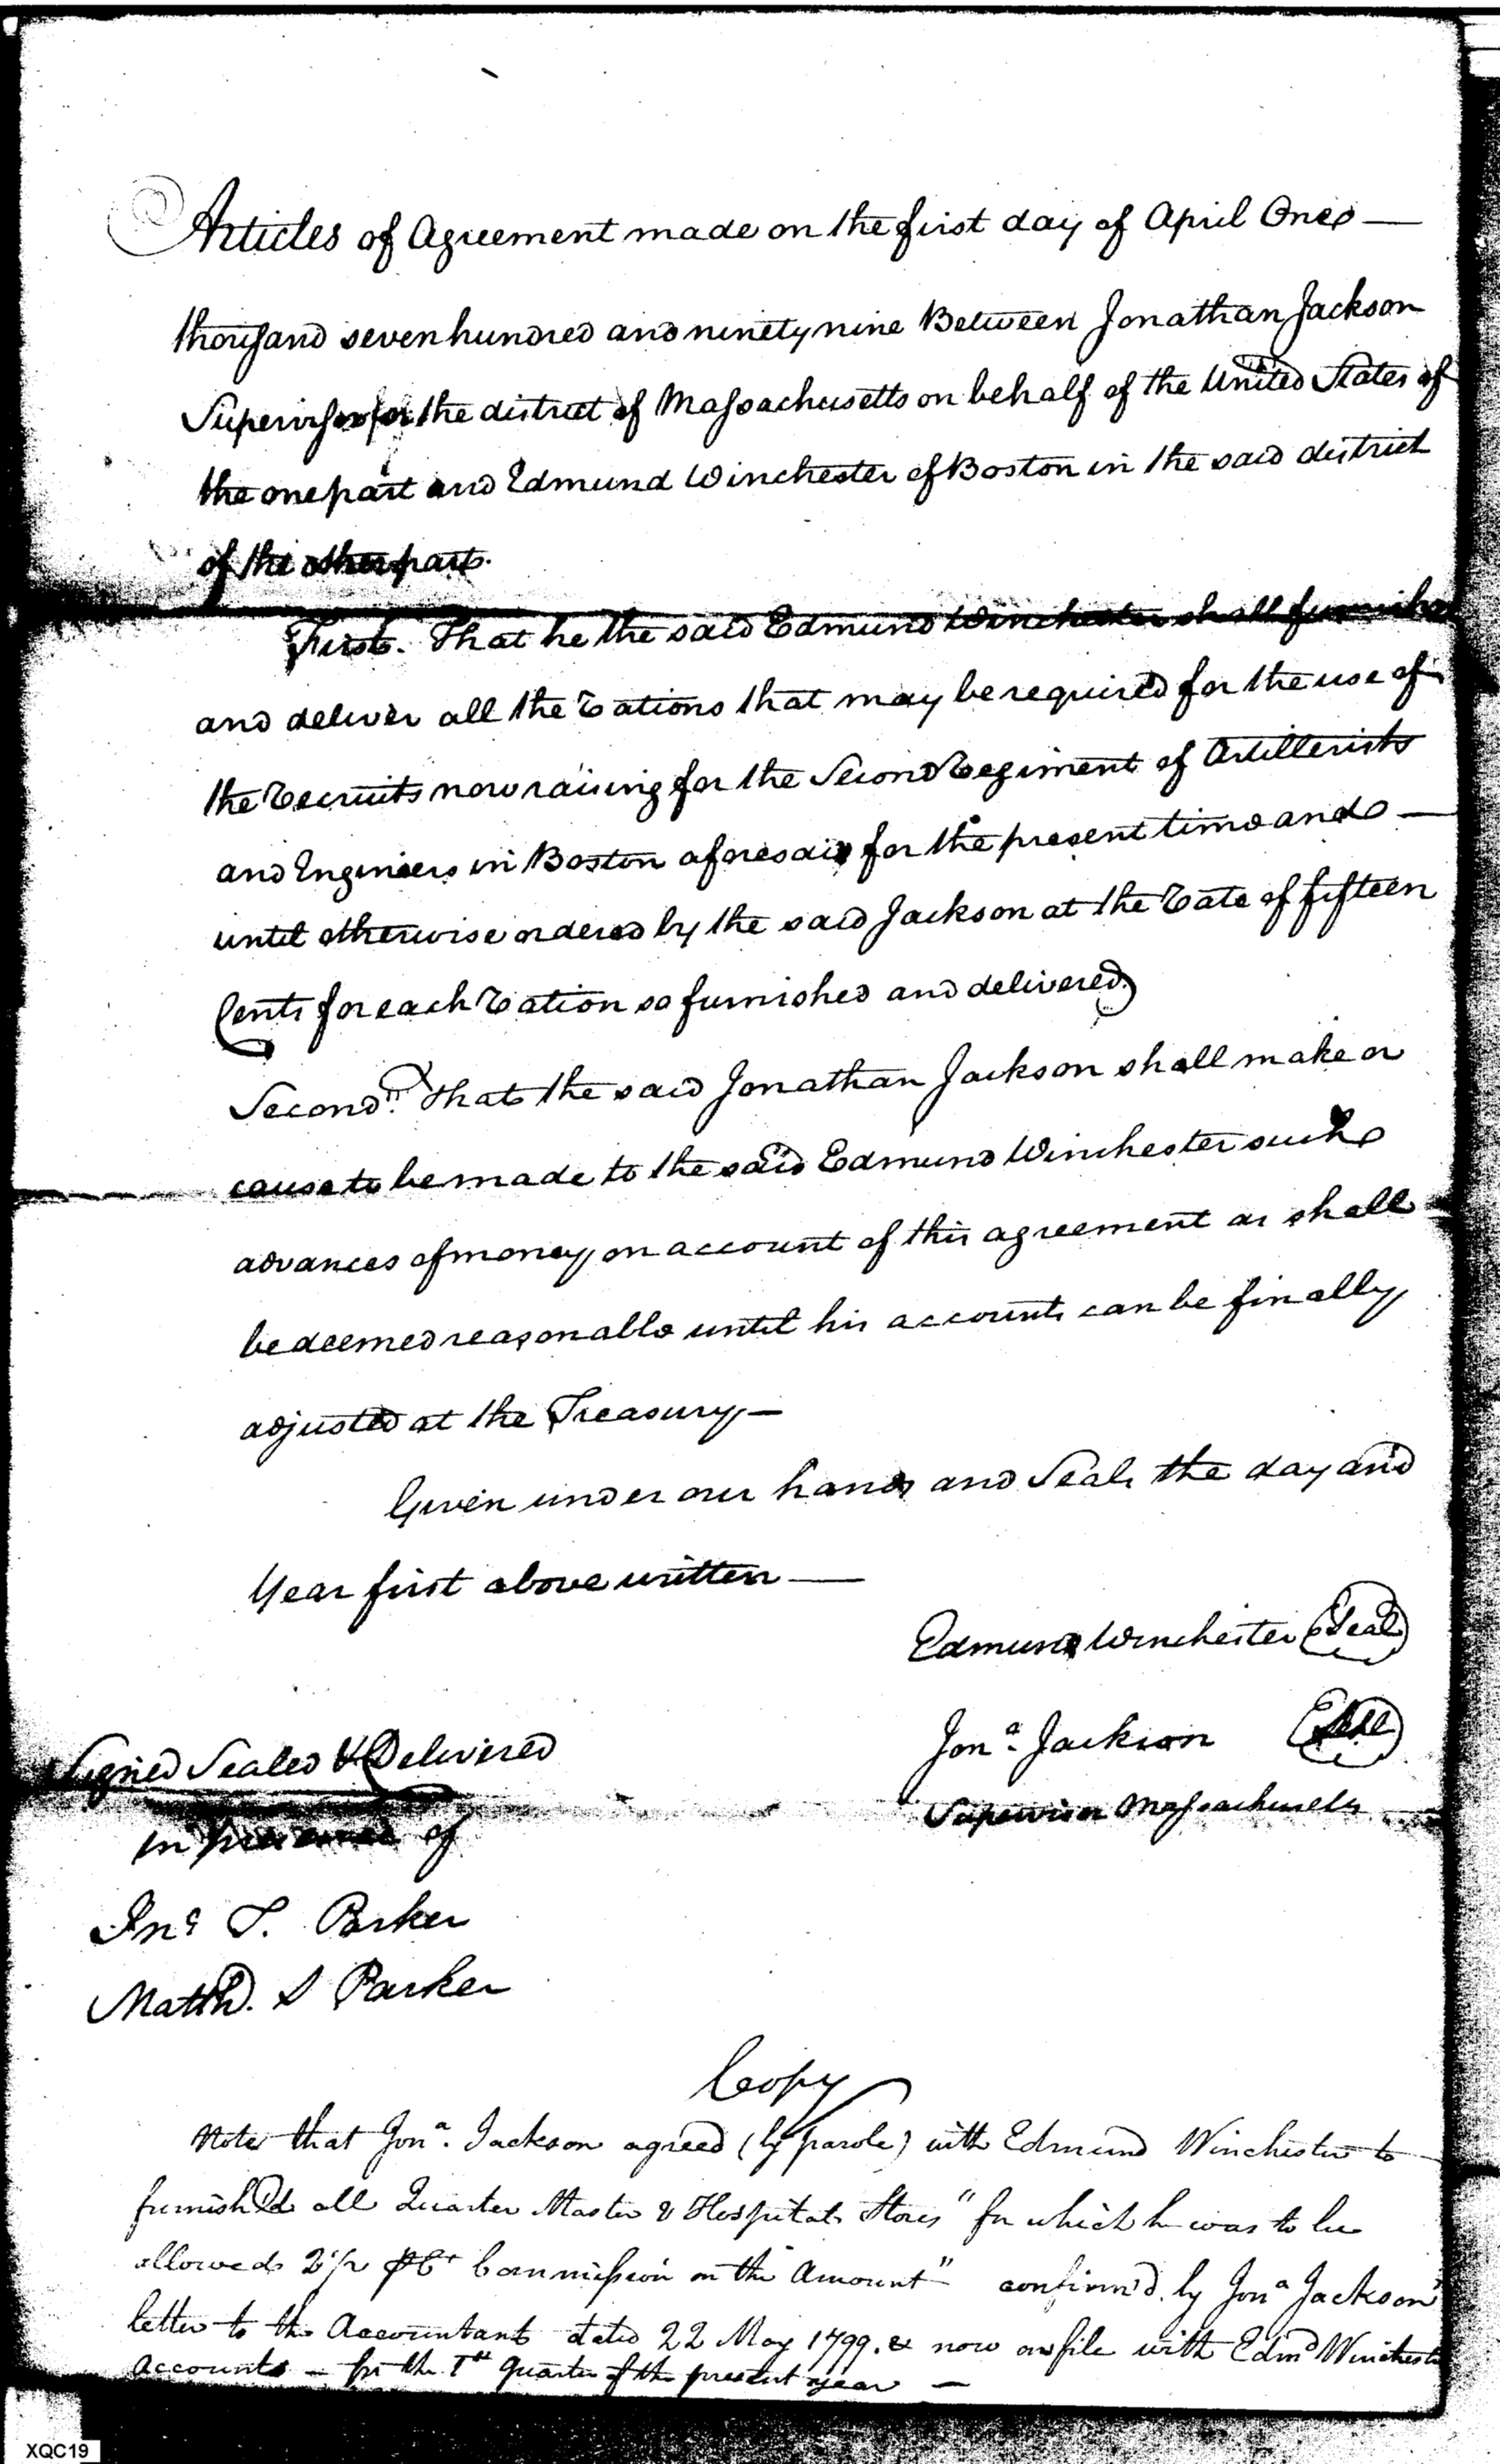 Articles of Agreement made on the first day of April One —
thousand seven hundred and ninety nine Between Jonathan Jackson
Supervisor for the district of Massachusetts on behalf of the United States of
the one part and Edmund Winchester of Boston in the said district
of the other part.
First. That he the said Edmund Winchester shall furnish
and deliver all the Rations that may be required for the use of
the Recruits now raising for the Second Regiment of Artillerists
and Engineers in Boston aforesaid for the present time and —
until otherwise ordered by the said Jackson at the Rate of fifteen
Cents for each Ration so furnished and delivered.
Second. That the said Jonathan Jackson shall make or
cause to be made to the said Edmund Winchester such
advances of money on account of this agreement as shall
be deemed reasonable until his accounts can be finally
adjusted at the Treasury —
Given under our hands and Seals the day and
Year first above written —
Edmund Winchester Seal
Jonᵃ. Jackson Seal
Supervisor Massachusetts
Signed Sealed & Delivered
in presence of
Jnᵒ T. Parker
Matthw. S Parker
Copy
Note that Jonᵃ. Jackson agreed (by parole) with Edmund Winchester to
furnish'd all Quarter Master & Hospital Stores "for which he was to be
allowed 2½ pCᵗ Commission on the Amount" confirm'd by Jonᵃ Jackson's
letter to the Accountant dated 22 May 1799. & now on file with Edmᵈ Winchester
accounts — for the 1ˢᵗ quarter of the present year —
XQC19